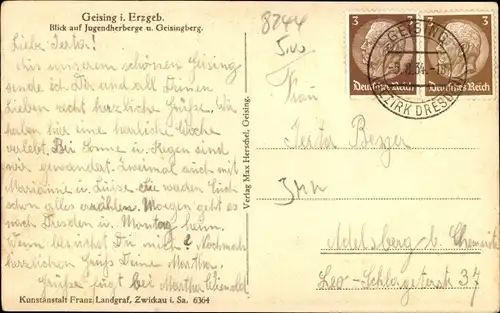 Geising i. Erzgeb.
Blick auf Jugendherberge u. Geisingberg.
8244
5,00
3
3
Deutsches Reich
Deutsches Reich
GEISING
34
BEZIRK DRESDEN
Liebe
Aus unserem schönen Geising
sende ich Dir und all Deinen
Lieben recht herzliche Grüße. Wir
haben hier eine herrliche Woche
verlebt. Bei Sonne u. Regen sind
wir gewandert. Zweimal auch mit
Marianne u. Luise, die werden Euch
schon alles erzählen. Morgen geht es
nach Dresden u. Montag heim.
Wann besuchst Du mich? Nochmals
herzlichen Gruß Deine Martha.
Grüße fügt bei Martha
Verlag Max Herschel, Geising.
Frau
Adelsberg b. Chemnitz
Leo-Schlageterstr 37
Kunstanstalt Franz Landgraf, Zwickau i. Sa. 6364